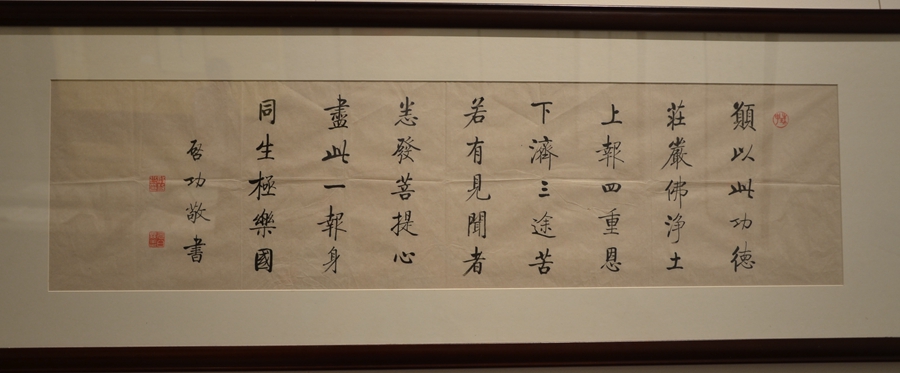 願以此功德
莊嚴佛淨土
上報四重恩
下濟三途苦
若有見聞者
悉發菩提心
盡此一報身
同生極樂國
啟功敬書